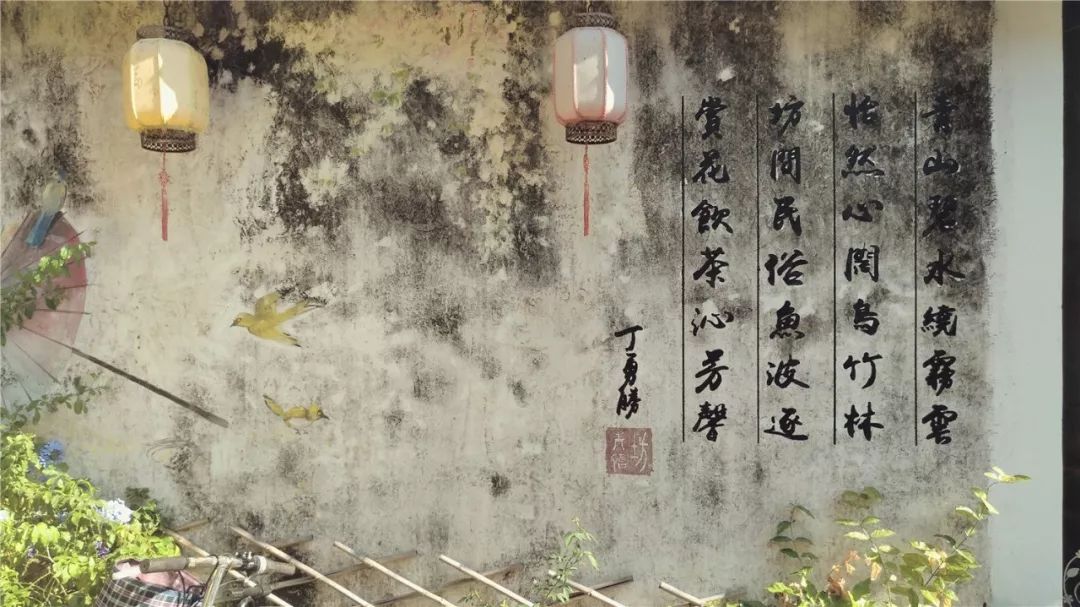 青山碧水繞霧雲
怡然心闊鳥竹林
坊間民俗魚波逐
賞花飲茶沁芳馨
丁勇勝
坊